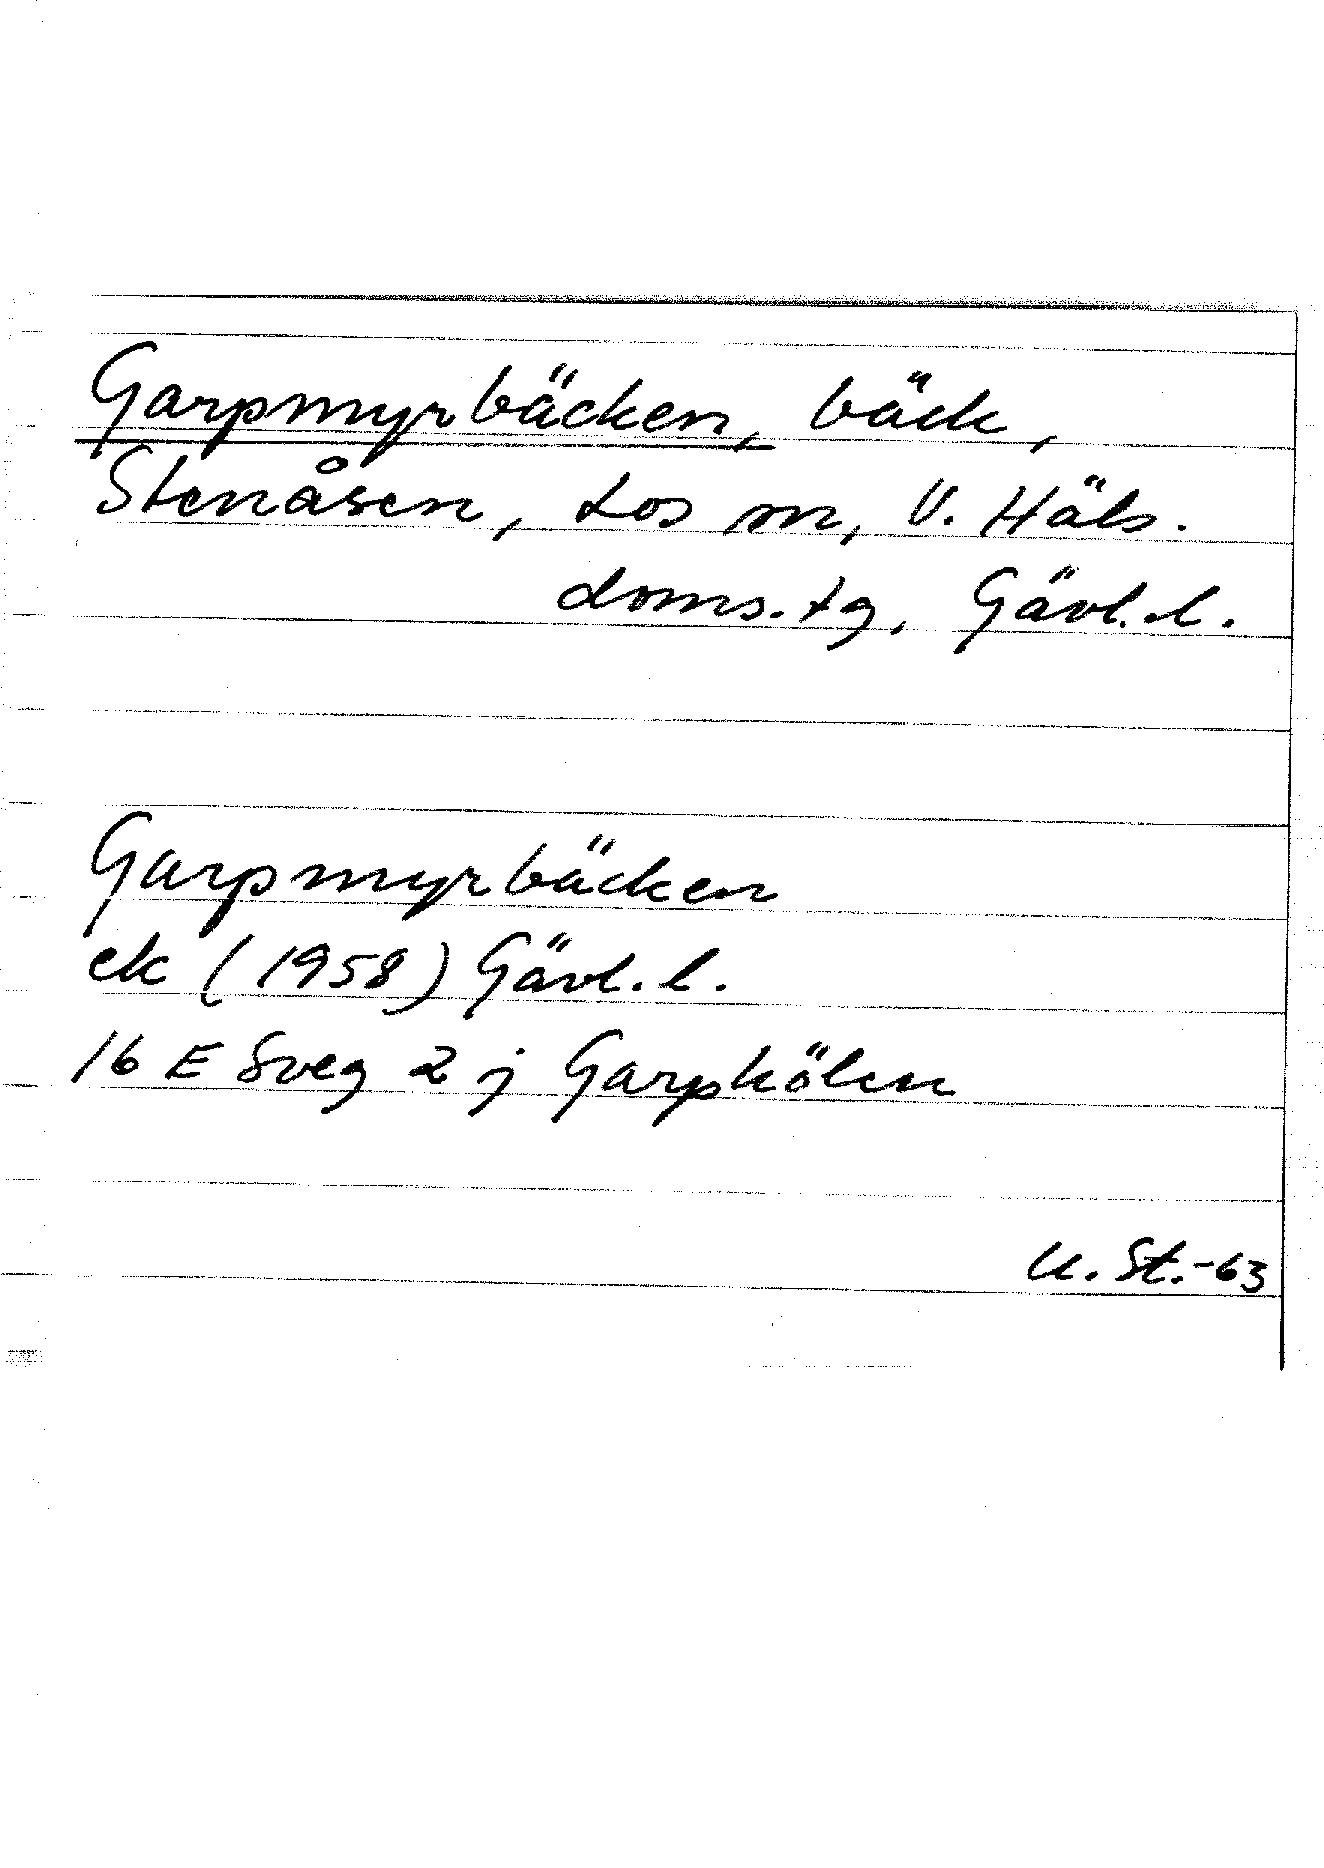 Garpmyrbäcken, bäck,
Stenåsen, Los sn, V. Häls.
doms.tg, Gävl.l.
Garpmyrbäcken
ek (1958) Gävl.l.
16 E Sveg 2 j Garpkölen
U. St.-63